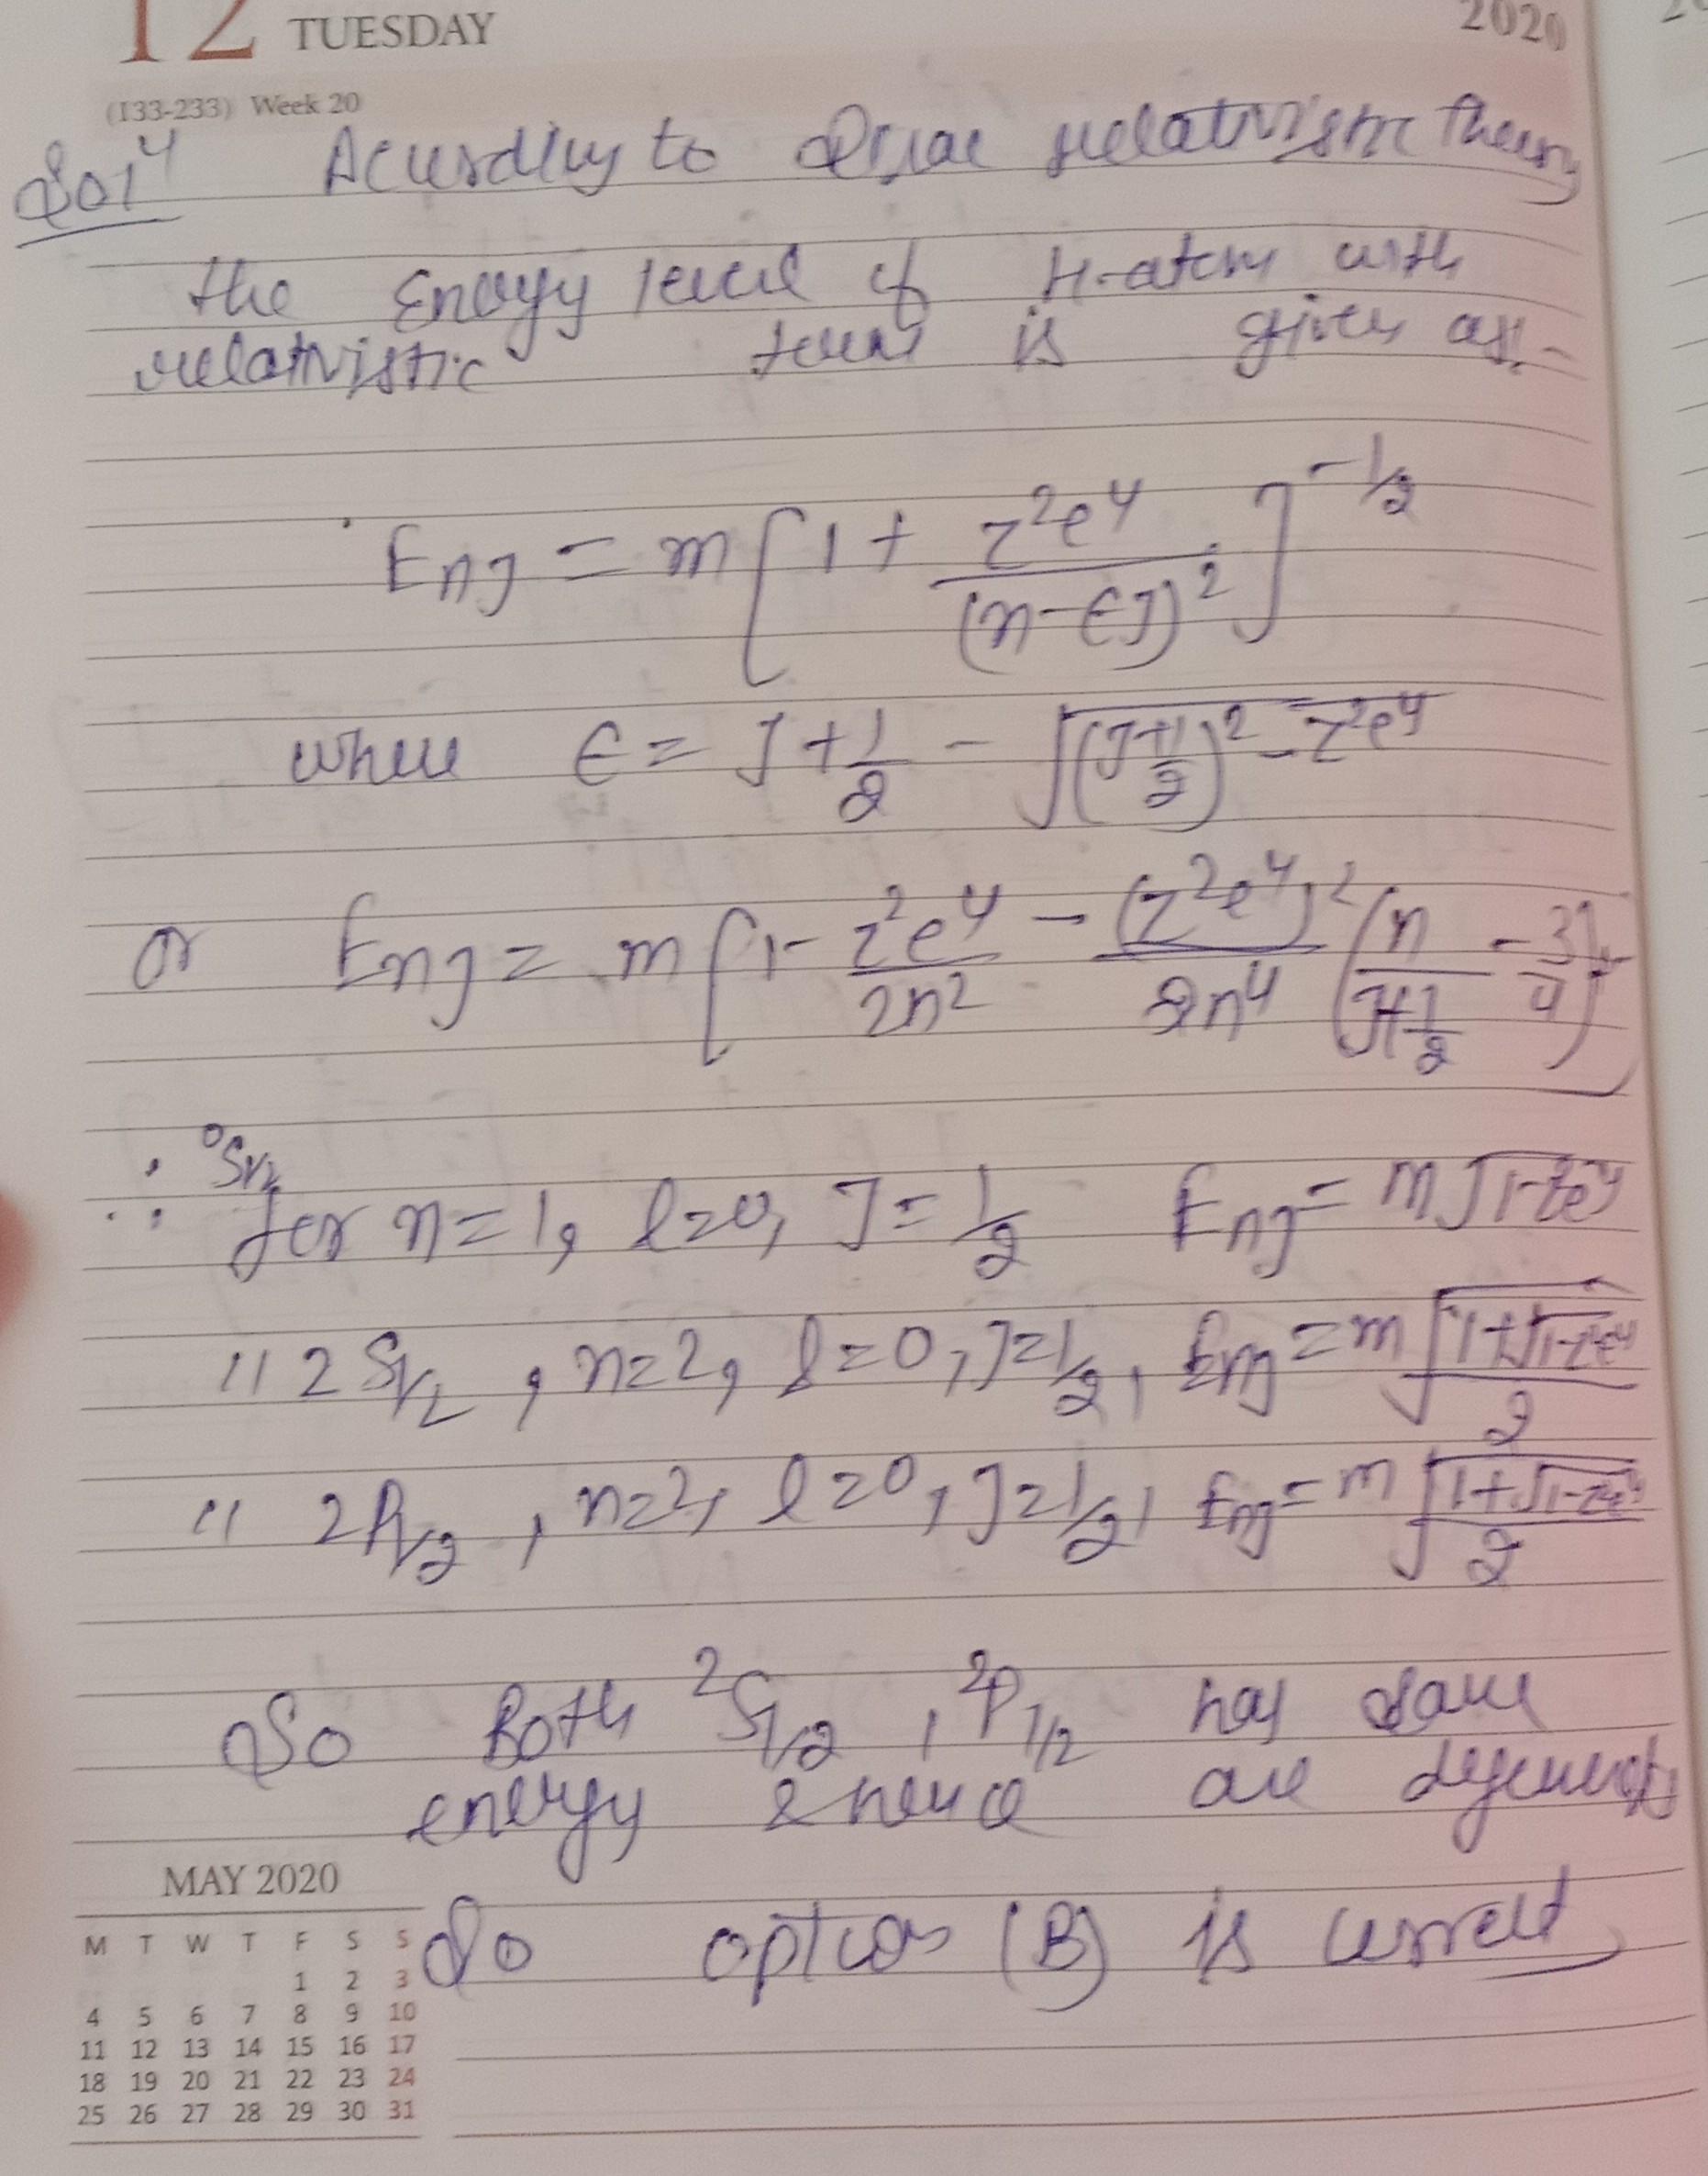 12 TUESDAY 2020
(133-233) Week 20
Solⁿ According to Dirac relativistic theory
the Energy level of H-atom with
relativistic term is given as:-
E_{nJ} = m[1 + z²e⁴/(n-ЄJ)²]^{-1/2}
where Є = J + 1/2 - √((J+1/2)² - z²e⁴)
or E_{nJ} = m[1 - z²e⁴/2n² - (z²e⁴)²/2n⁴ (n/(J+1/2) - 3/4)]
∴ for n=1, l=0, J=1/2 E_{nJ} = m√(1-z²e⁴)
" 2S_{1/2}, n=2, l=0, J=1/2, E_{nJ} = m√((1+√(1-z²e⁴))/2)
" 2P_{1/2}, n=2, l=0, J=1/2, E_{nJ} = m√((1+√(1-z²e⁴))/2)
So Both ²S_{1/2}, ²P_{1/2} has same
energy & hence are degenerate
So option (B) is correct
MAY 2020
M T W T F S S
1 2 3
4 5 6 7 8 9 10
11 12 13 14 15 16 17
18 19 20 21 22 23 24
25 26 27 28 29 30 31